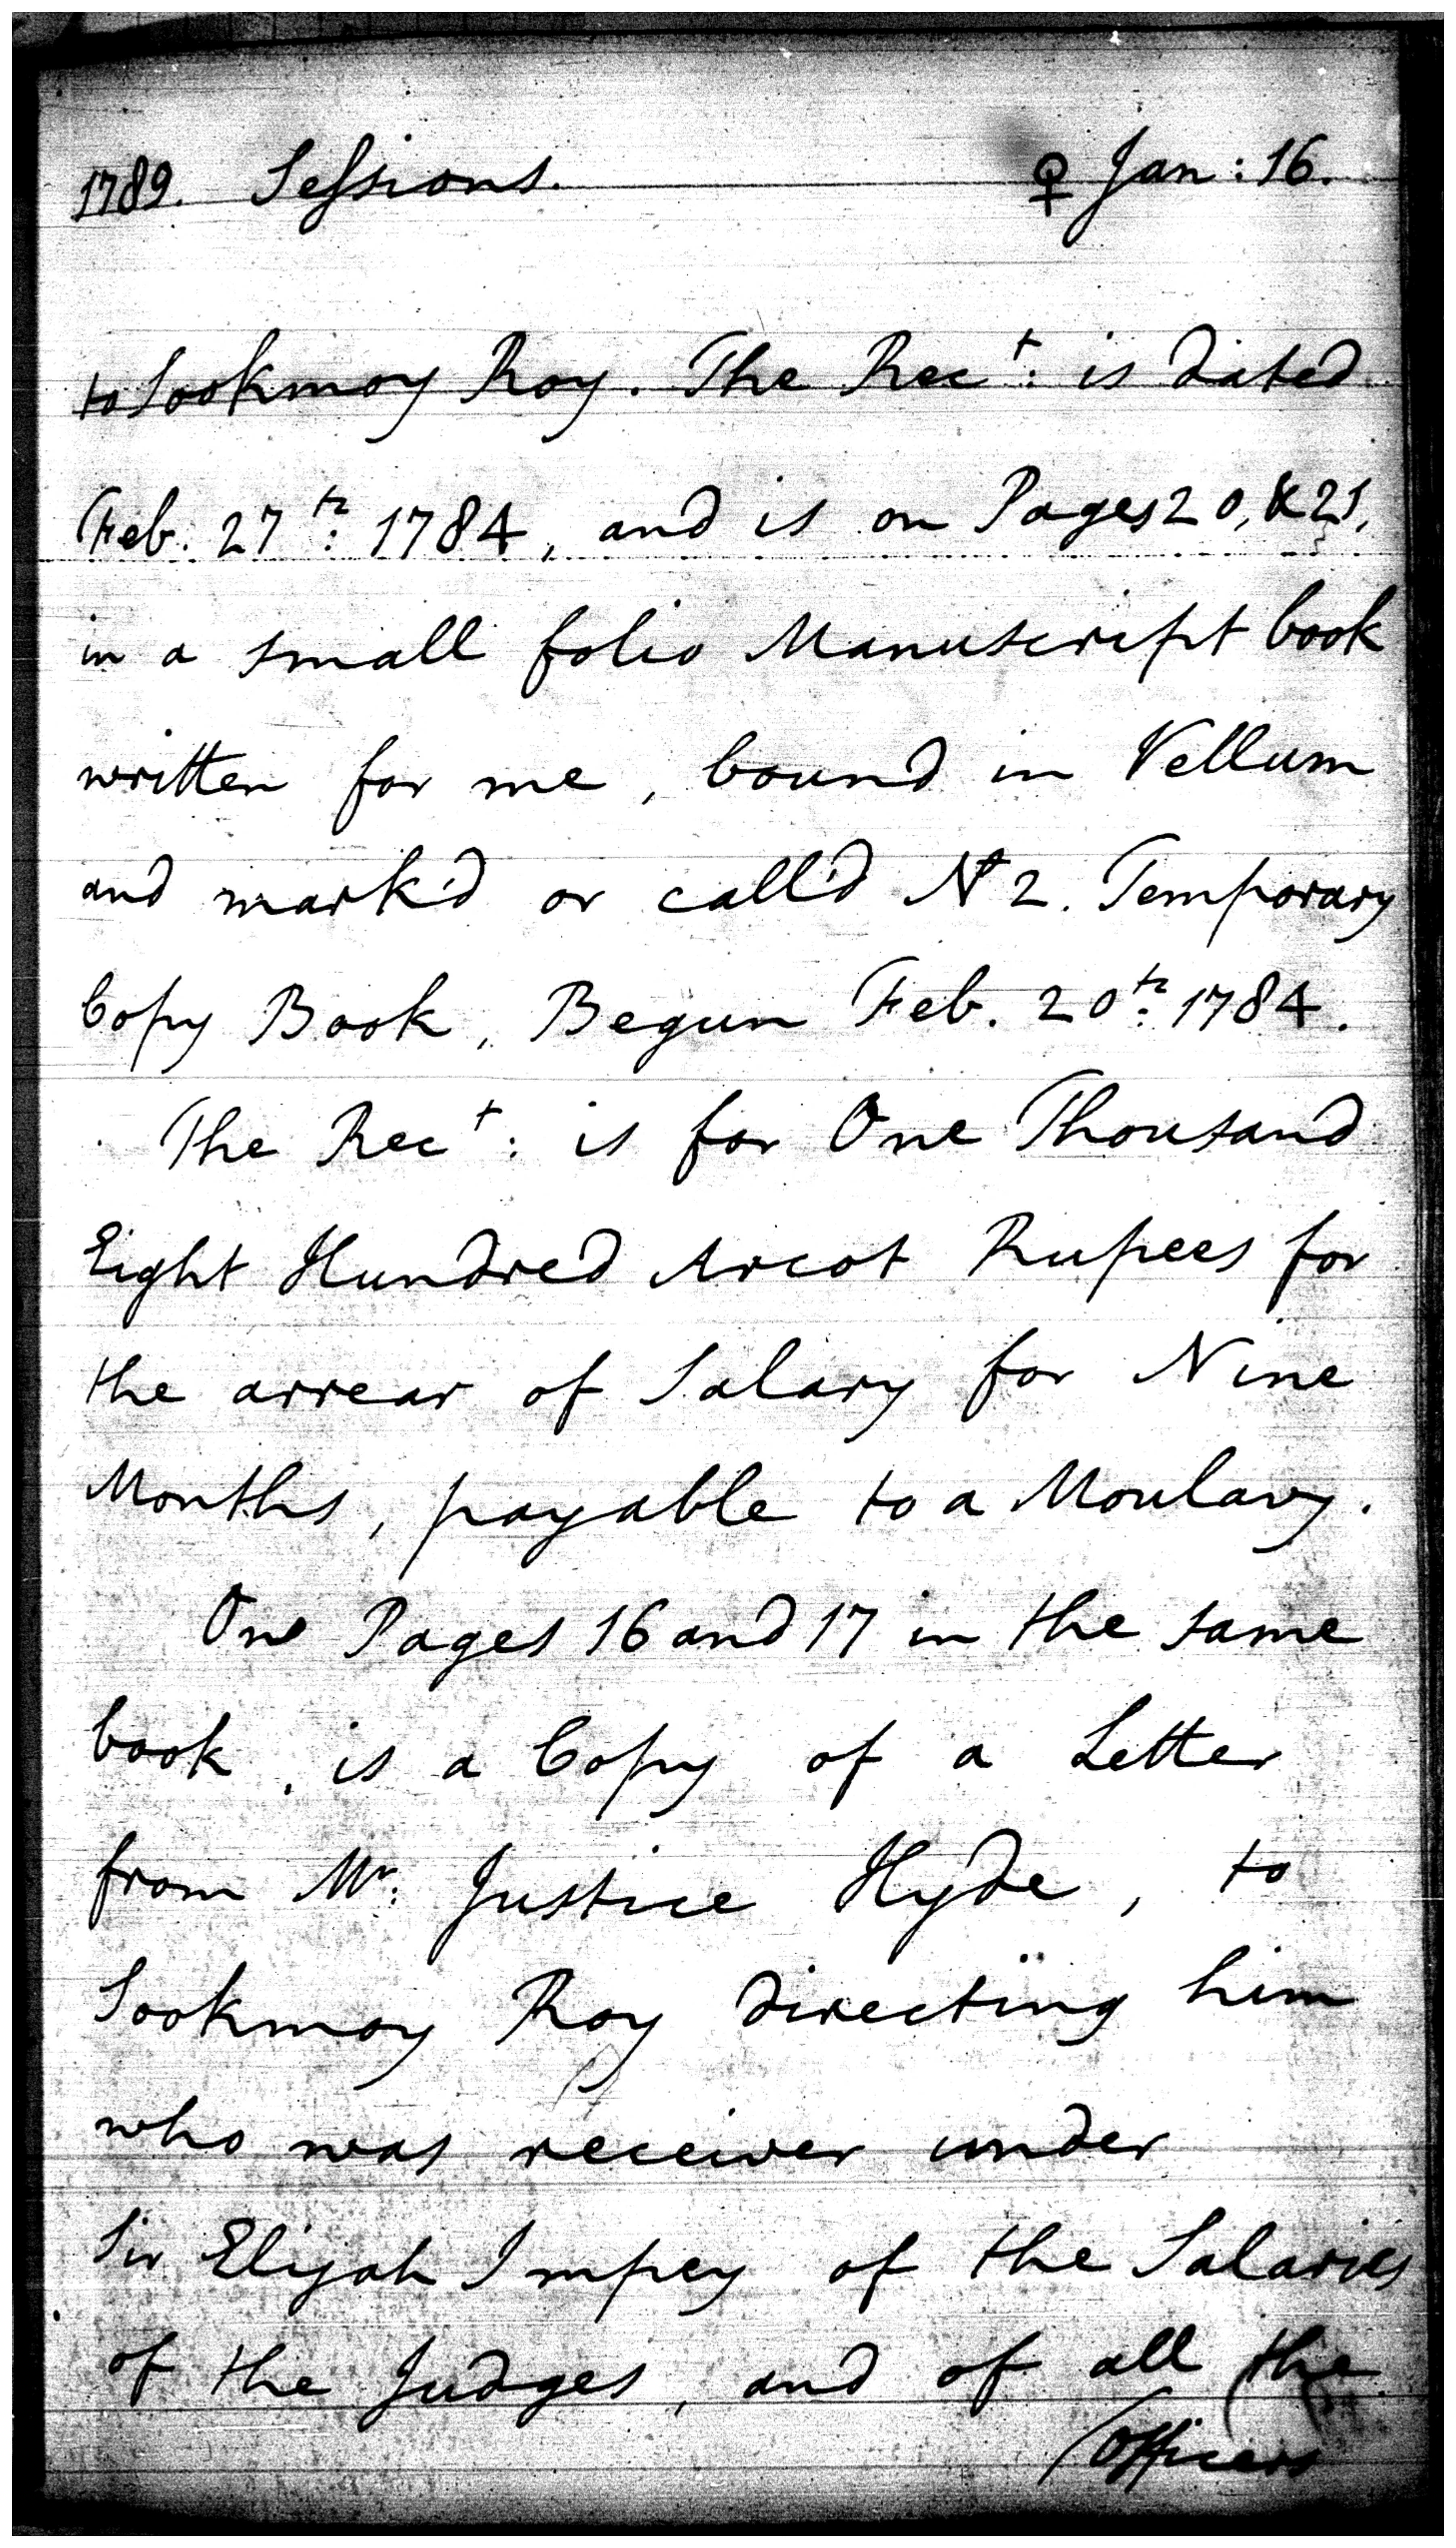 1789. Sessions. ♀ Jan: 16.
to Sookmoy Roy. The Rec^t: is dated
Feb. 27^th: 1784, and is on Pages 20, & 21,
in a small folio Manuscript book
written for me, bound in Vellum
and mark'd or call'd N^o 2. Temporary
Copy Book, Begun Feb. 20^th: 1784.
The Rec^t: is for One Thousand
Eight Hundred Arcot Rupees for
the arrear of Salary for Nine
Months, payable to a Moulavy.
One Pages 16 and 17 in the same
book, is a Copy of a Letter
from M^r: Justice Hyde, to
Sookmoy Roy directing him
who was receiver under
Sir Elijah Impey of the Salaries
of the Judges, and of all the
Officers